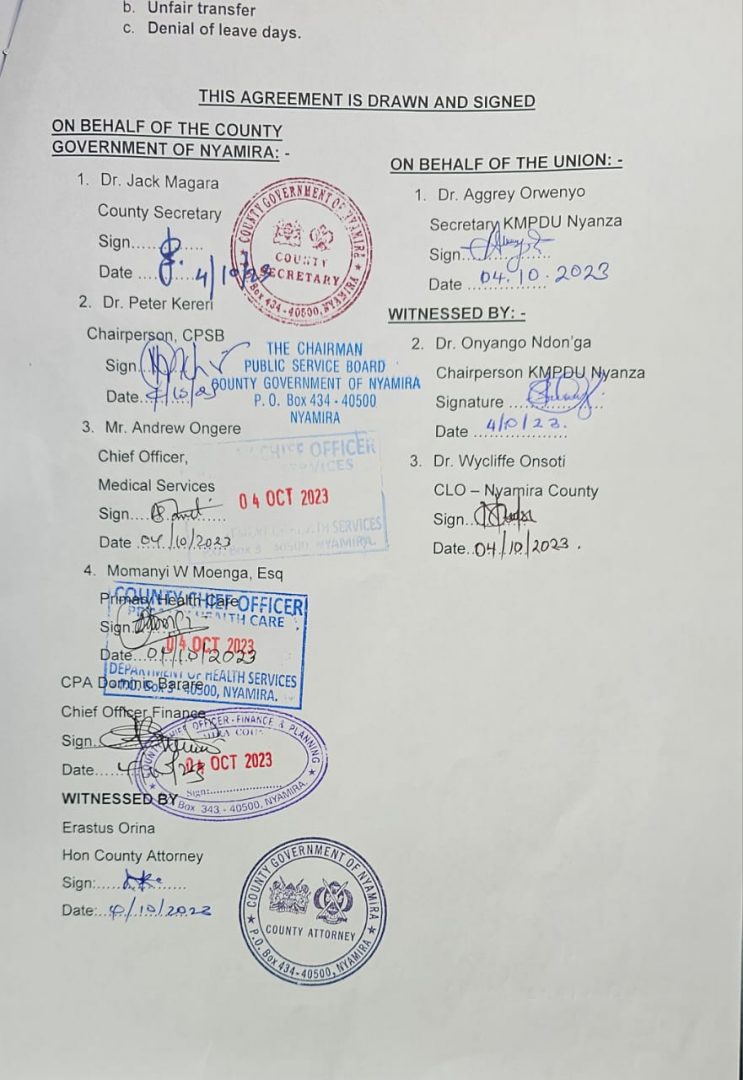 b. Unfair transfer
c. Denial of leave days.
THIS AGREEMENT IS DRAWN AND SIGNED
ON BEHALF OF THE COUNTY
GOVERNMENT OF NYAMIRA: -
1. Dr. Jack Magara
County Secretary
Sign.....
Date .... 4/10/23
COUNTY GOVERNMENT OF NYAMIRA
COUNTY
SECRETARY
Box 434-40500, NYAMIRA
2. Dr. Peter Kereri
Chairperson, CPSB
Sign.
Date.. 4/10/23
THE CHAIRMAN
PUBLIC SERVICE BOARD
COUNTY GOVERNMENT OF NYAMIRA
P. O. Box 434 - 40500
NYAMIRA
3. Mr. Andrew Ongere
Chief Officer,
Medical Services
Sign....
Date 04/10/2023
CHIEF OFFICER
SERVICES
04 OCT 2023
HEALTH SERVICES
P.O. Box 3 - 40500 NYAMIRA.
4. Momanyi W Moenga, Esq
Primary Health Care
Sign.
Date....04/10/2023
COUNTY CHIEF OFFICER
PRIMARY HEALTH CARE
04 OCT 2023
DEPARTMENT OF HEALTH SERVICES
P.O. Box 3 - 40500, NYAMIRA.
CPA Dominic Barare
Chief Officer Finance
Sign..
Date.....4/10/23
COUNTY CHIEF OFFICER - FINANCE & PLANNING
04 OCT 2023
Sign:..................
Box 343 - 40500, NYAMIRA.
WITNESSED BY
Erastus Orina
Hon County Attorney
Sign:..............
Date:..4/10/2023
COUNTY GOVERNMENT OF NYAMIRA
COUNTY ATTORNEY
P.O. Box 434-40500, NYAMIRA
ON BEHALF OF THE UNION: -
1. Dr. Aggrey Orwenyo
Secretary KMPDU Nyanza
Sign..............
Date ..04.10.2023
WITNESSED BY: -
2. Dr. Onyango Ndon'ga
Chairperson KMPDU Nyanza
Signature ................
Date 4/0/23.
3. Dr. Wycliffe Onsoti
CLO – Nyamira County
Sign..
Date..04/10/2023.